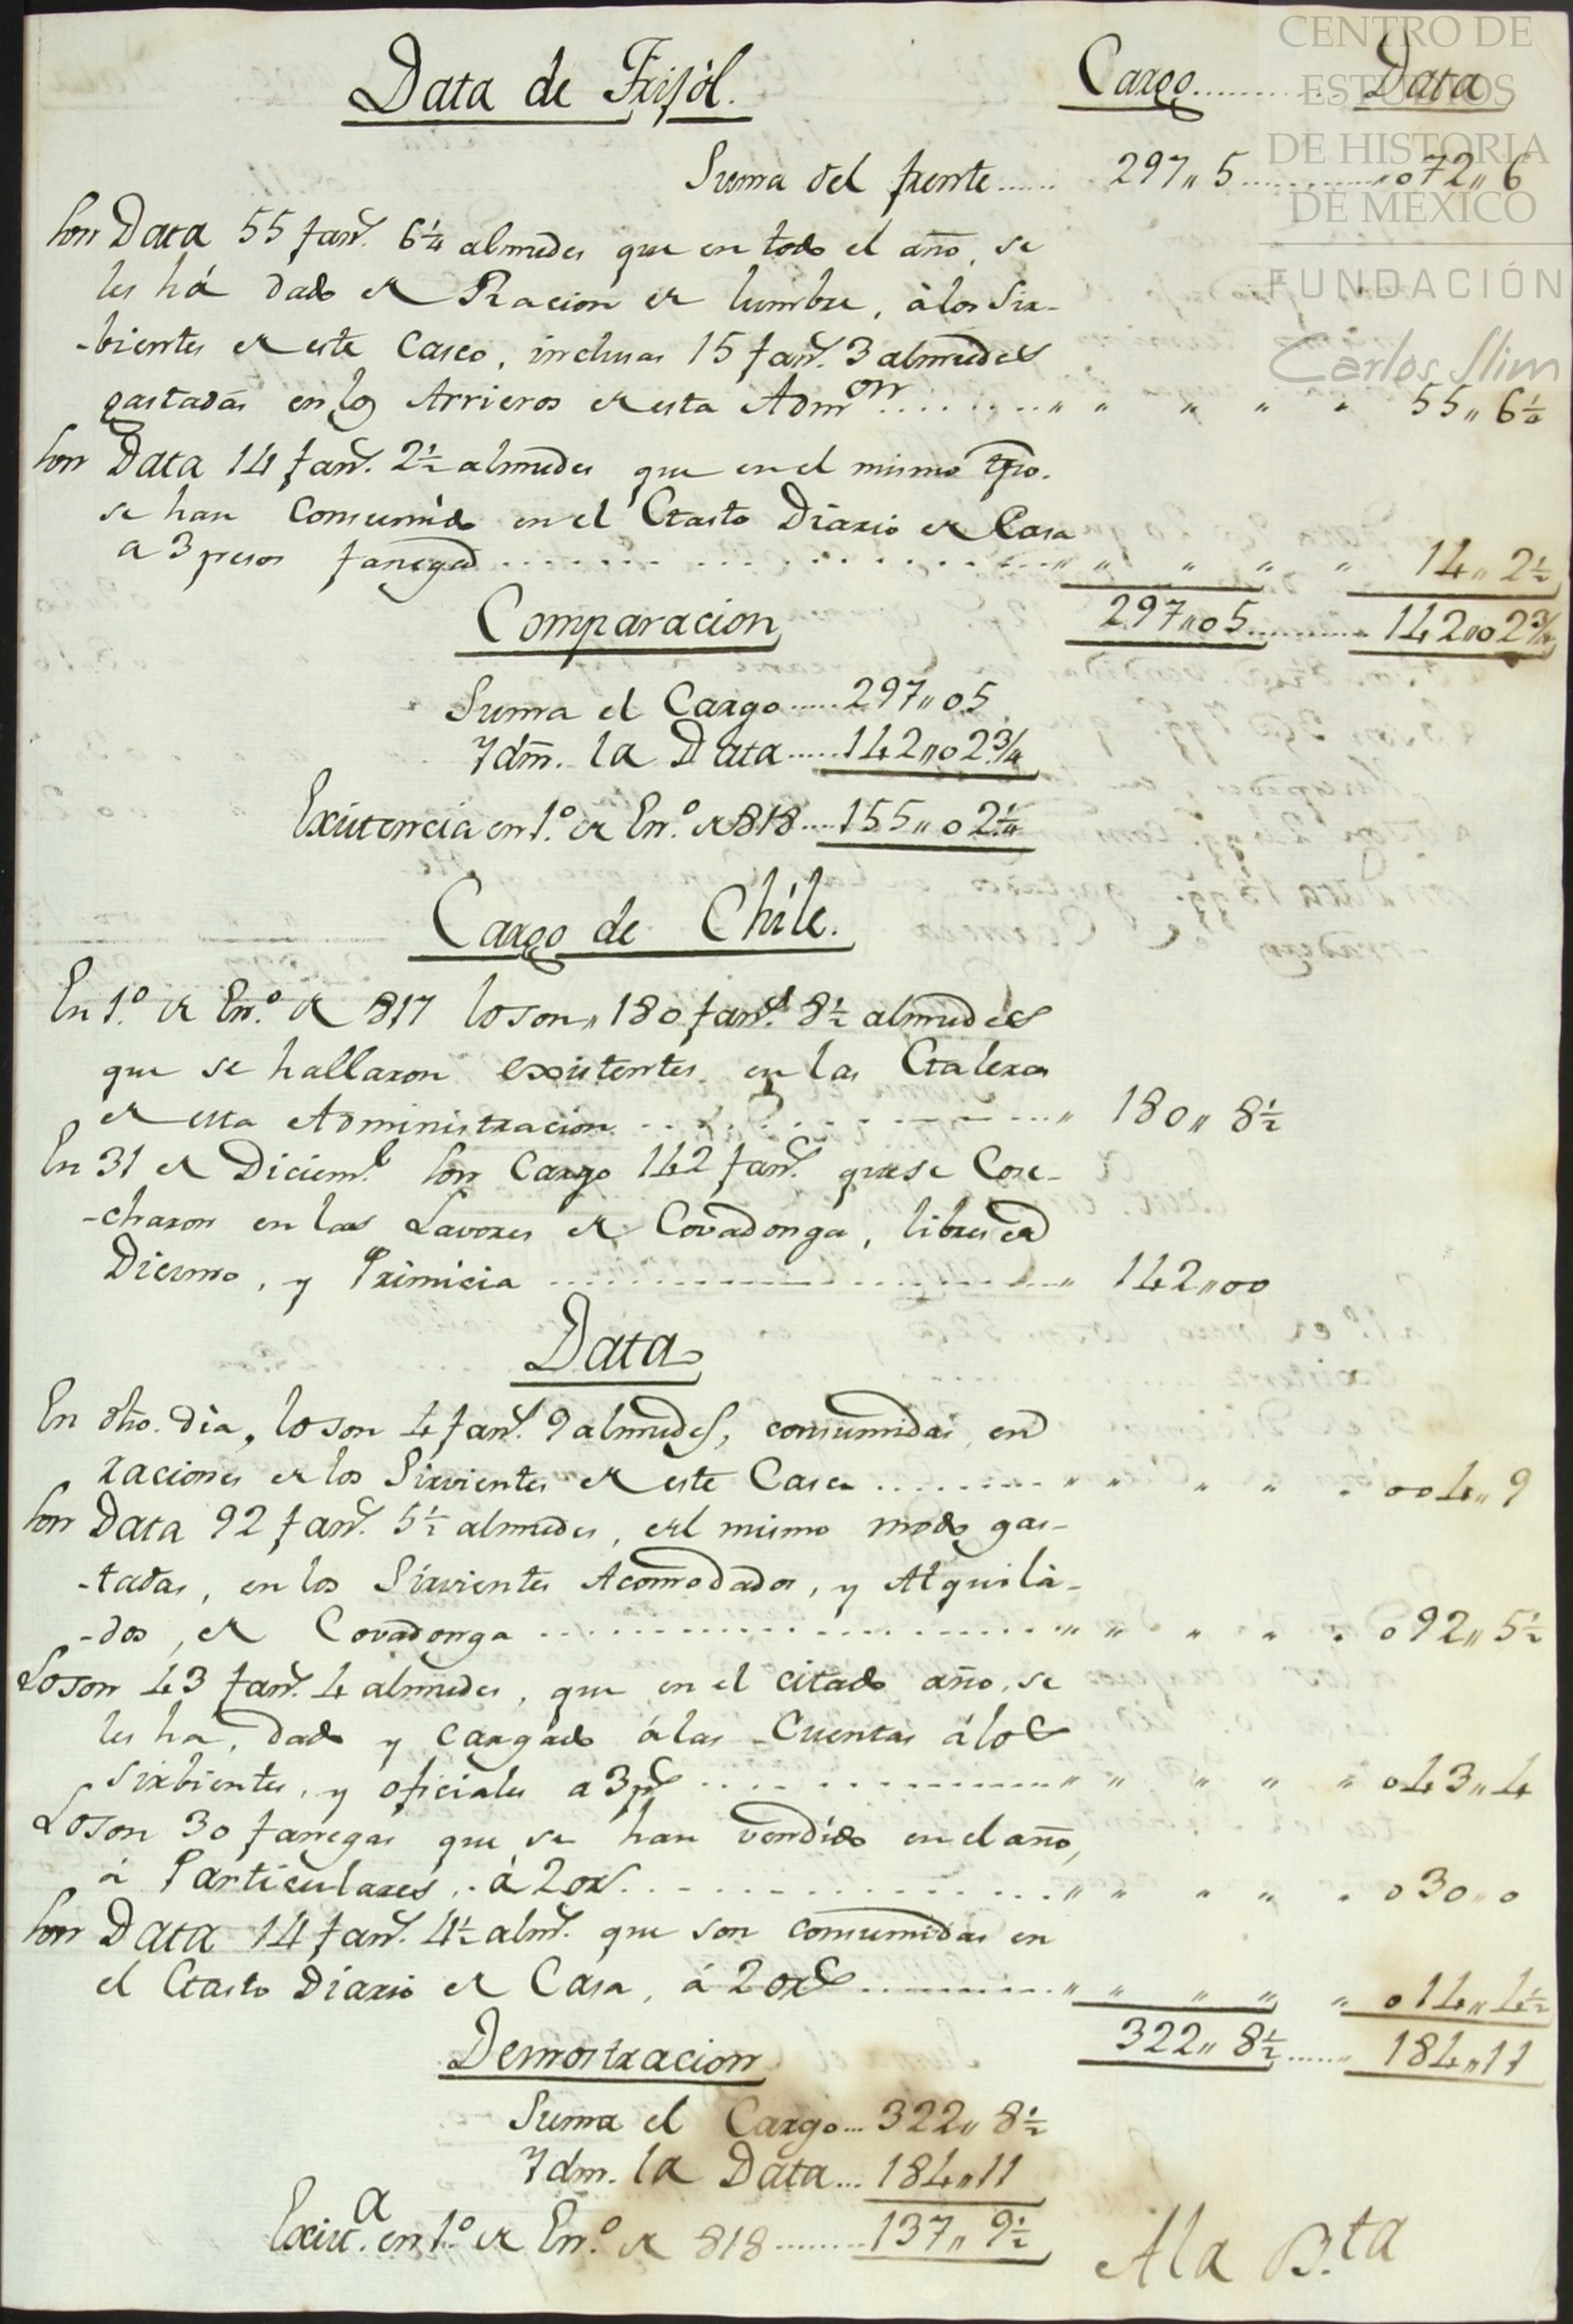 CENTRO DE
ESTUDIOS
DE HISTORIA
DE MÉXICO
FUNDACIÓN
Carlos Slim
Data de Frijól. Cargo............ Data
Suma del frente...... 297,, 5............,, o72,, 6
Son Data 55 fans. 6¼ almudes que en todo el año, se
les há dado de Racion de lumbre, à los Sir-
-bientes de este Casco, inclusas 15 fans. 3 almudes
gastadas en los Arrieros de esta Admon.......... ,, ,, ,, ,, ,, 55,, 6¼
Son Data 14 fans. 2½ almudes que en el mismo tpo.
se han Consumido en el Gasto Diario de Casa
a 3 pesos fanega.......................... ,, ,, ,, ,, ,, 14,, 2½
297,,o5............ 142,,o2¾
Comparacion
Suma el Cargo......297,,o5
Ydm. la Data......142,,o2¾
Existencia en 1.º de En.º de 818....155,,o2¼
Cargo de Chile.
En 1.º de En.º de 817 loson,, 180 fans. 8½ almudes
que se hallaron existentes en las Galeras
de esta Administracion..................,, 180,, 8½
En 31 de Diciem.e son Cargo 142 fans. que se Cose-
-charon en las Lavores de Covadonga, libres de
Diesmo, y Primicia ..........................,, 142,,oo
Data
En dho. dia, loson 4 fans. 9 almudes, consumidas en
raciones de los Sirvientes de este Casco .......... ,, ,, ,, ,, oo4,, 9
Son Data 92 fans. 5½ almudes, del mismo modo gas-
-tadas, en los Sirvientes Acomodados, y Alquilà-
-dos, de Covadonga ........................ ,, ,, ,, ,, o92,, 5½
Loson 43 fans. 4 almudes, que en el citado año, se
les ha, dado y cargado á las Cuentas á los
Sirbientes, y oficiales a 3 ps .................. ,, ,, ,, ,, ,, o43,, 4
Loson 30 fanegas que se han vendido en el año,
á Particulares, á 20 rs...................... ,, ,, ,, ,, o30,, o
Son Data 14 fans. 4½ alms. que son consumidas en
el Gasto Diario de Casa, á 20 rs ............ ,, ,, ,, ,, ,, o14,, 4½
322,, 8½...... 184,,11
Demostracion
Suma el Cargo... 322,, 8½
Ydm. la Data... 184,,11
Exist.a en 1.º de En.º de 818 ........137,, 9½
A la B.ta